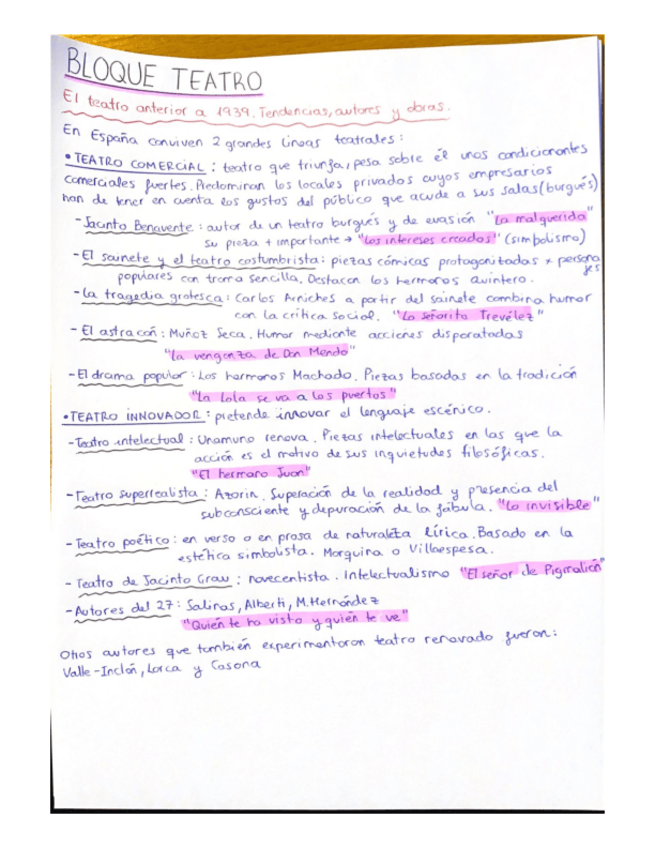 BLOQUE TEATRO
El teatro anterior a 1939. Tendencias, autores y obras.
En España conviven 2 grandes líneas teatrales:
• TEATRO COMERCIAL: teatro que triunfa, pesa sobre él unos condicionantes
comerciales fuertes. Predominan los locales privados cuyos empresarios
han de tener en cuenta los gustos del público que acude a sus salas (burgués)
- Jacinto Benavente: autor de un teatro burgués y de evasión "La malquerida"
su pieza + importante → "Los intereses creados" (simbolismo)
- El sainete y el teatro costumbrista: piezas cómicas protagonizadas x persona
jes
populares con trama sencilla. Destacan los hermanos Quintero.
- La tragedia grotesca: Carlos Arniches a partir del sainete combina humor
con la crítica social. "La señorita Trevélez"
- El astracán: Muñoz Seca. Humor mediante acciones disparatadas
"La venganza de Don Mendo"
- El drama popular: Los hermanos Machado. Piezas basadas en la tradición
"La Lola se va a los puertos"
• TEATRO INNOVADOR: pretende innovar el lenguaje escénico.
- Teatro intelectual: Unamuno renova. Piezas intelectuales en las que la
acción es el motivo de sus inquietudes filosóficas.
"El hermano Juan"
- Teatro superrealista: Azorín. Superación de la realidad y presencia del
subconsciente y depuración de la fábula. "Lo invisible"
- Teatro poético: en verso o en prosa de naturaleza lírica. Basado en la
estética simbolista. Marquina o Villaespesa.
- Teatro de Jacinto Grau: novecentista. Intelectualismo "El señor de Pigmalión"
- Autores del 27: Salinas, Alberti, M.Hernández
"Quién te ha visto y quién te ve"
Otros autores que también experimentaron teatro renovado fueron:
Valle-Inclán, Lorca y Casona